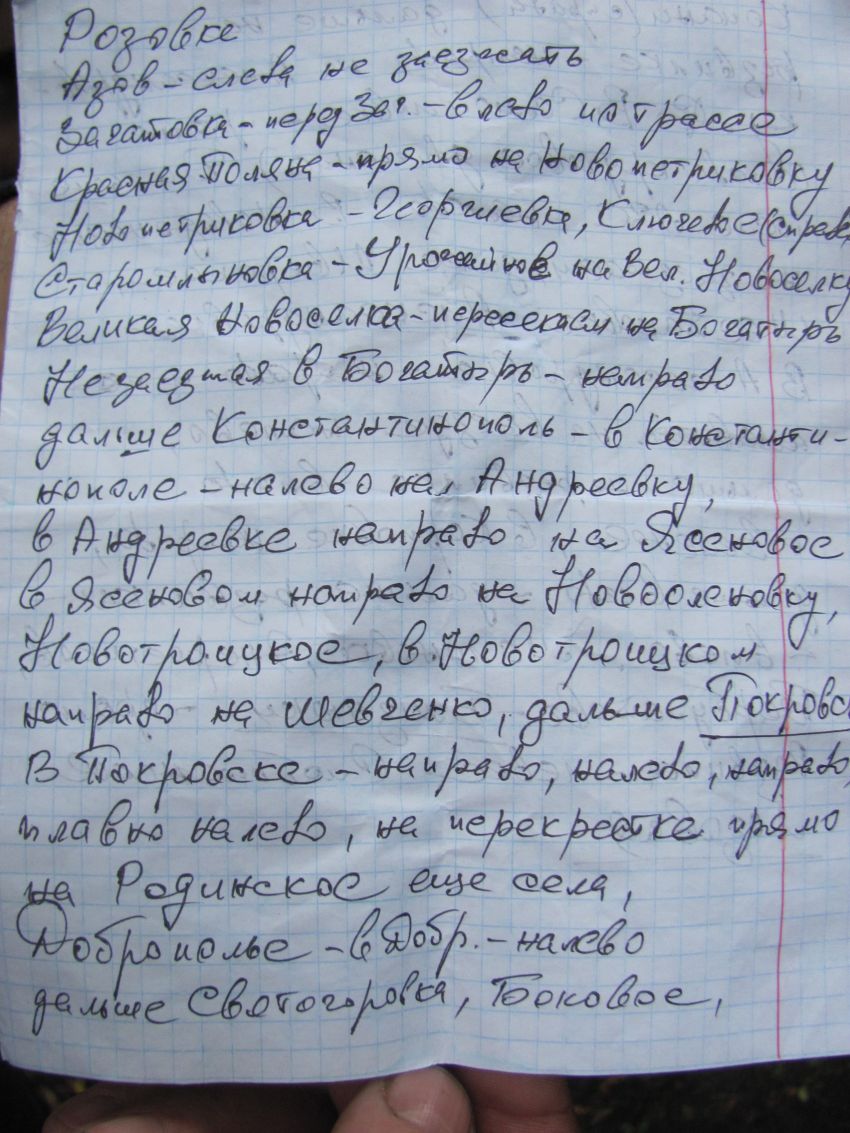 Розовке
Азов - слева не заезжать
Зачатовка - перед Зач. - влево по трассе
Красная Поляна - прямо на Новопетриковку
Новопетриковка - Георгиевка, Ключевое (справа
Старомлыновка - Урожайное на Вел. Новоселку
Великая Новоселка - пересекаем на Богатырь
Незаезжая в Богатырь - направо
дальше Константинополь - в Константи-
нополе - налево на Андреевку,
в Андреевке направо на Ясеновое
в Ясеновом направо на Новооленовку,
Новотроицкое, в Новотроицком
направо на Шевченко, дальше Покровс
В Покровске - направо, налево, направо,
плавно налево, на перекрестке прямо
на Родинское еще села,
Доброполье - в Добр. - налево
дальше Святогоровка, Боковое,